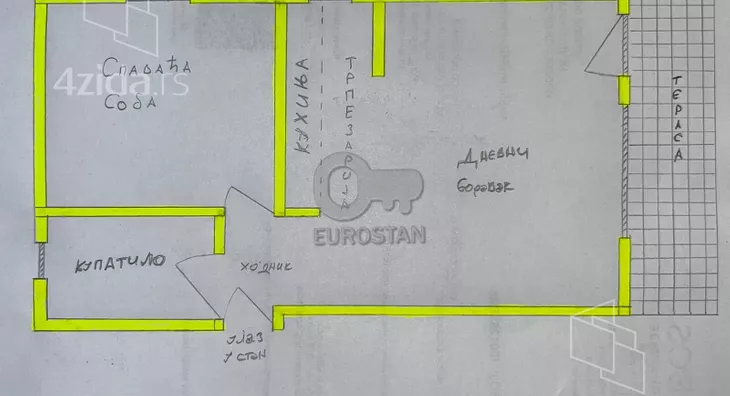 Спаваћа
Соба
4zida.rs
КУХИЊА
ТРПЕЗАРИЈА
ТЕРАСА
Дневни
боравак
EUROSTAN
КУПАТИЛО
ХОДНИК
УЛАЗ
У СТАН